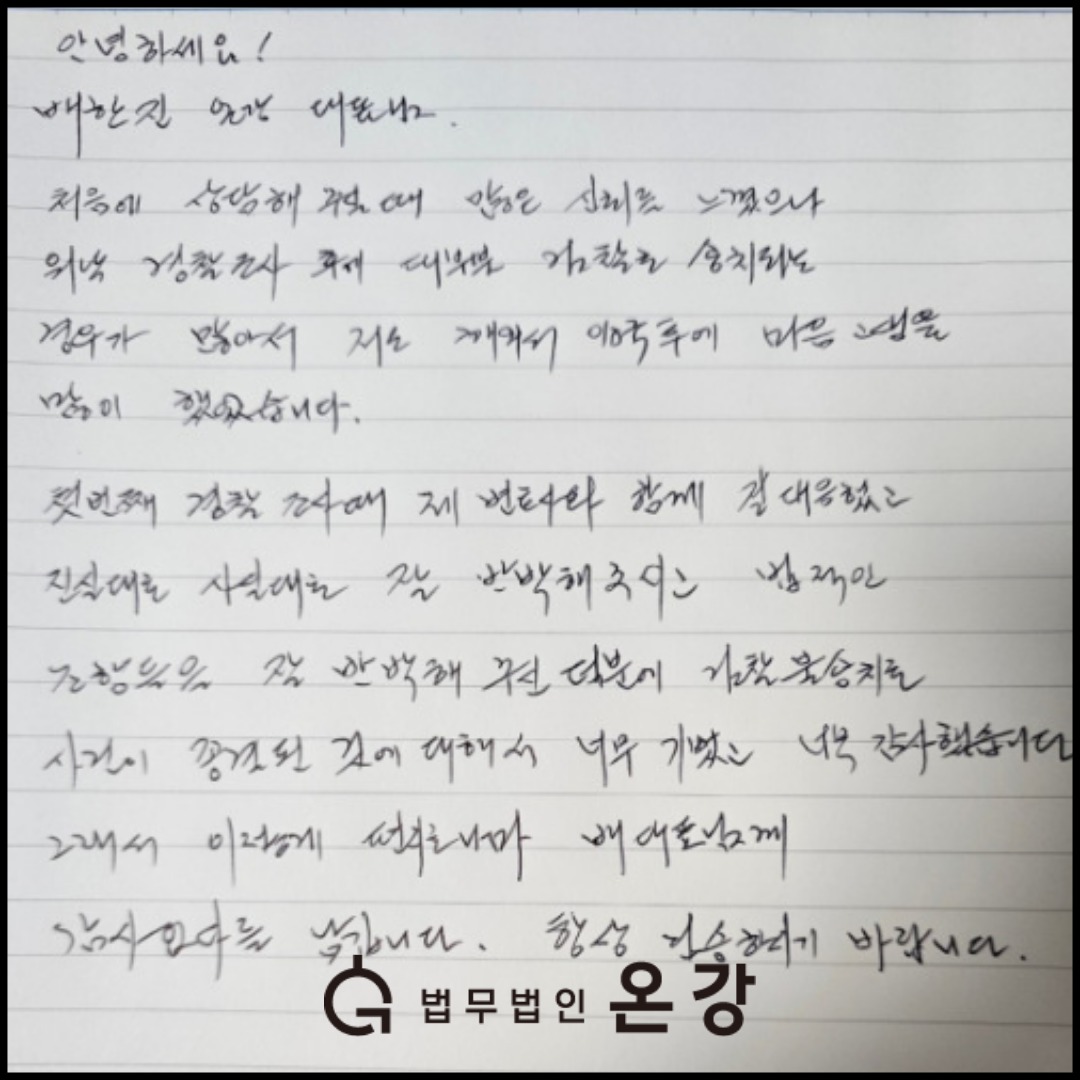 안녕하세요!
배한진 온강 대표님.
처음에 상담해 주실때 많은 신뢰를 느꼈으나
워낙 경찰조사 후에 대부분 검찰로 송치되는
경우가 많아서 저도 계약 후에 마음고생을
많이 했었습니다.
첫번째 경찰 조사때 제 변호사와 함께 잘 대응했고
진실대로 사실대로 잘 반박해주시고 법적인
조항들을 잘 반박해 주신 덕분에 검찰 불송치로
사건이 종결된 것에 대해서 너무 기뻤고 너무 감사했습니다
그래서 이렇게 편지로나마 배대표님께
감사인사를 남깁니다. 항상 건승하시기 바랍니다.
법무법인 온강